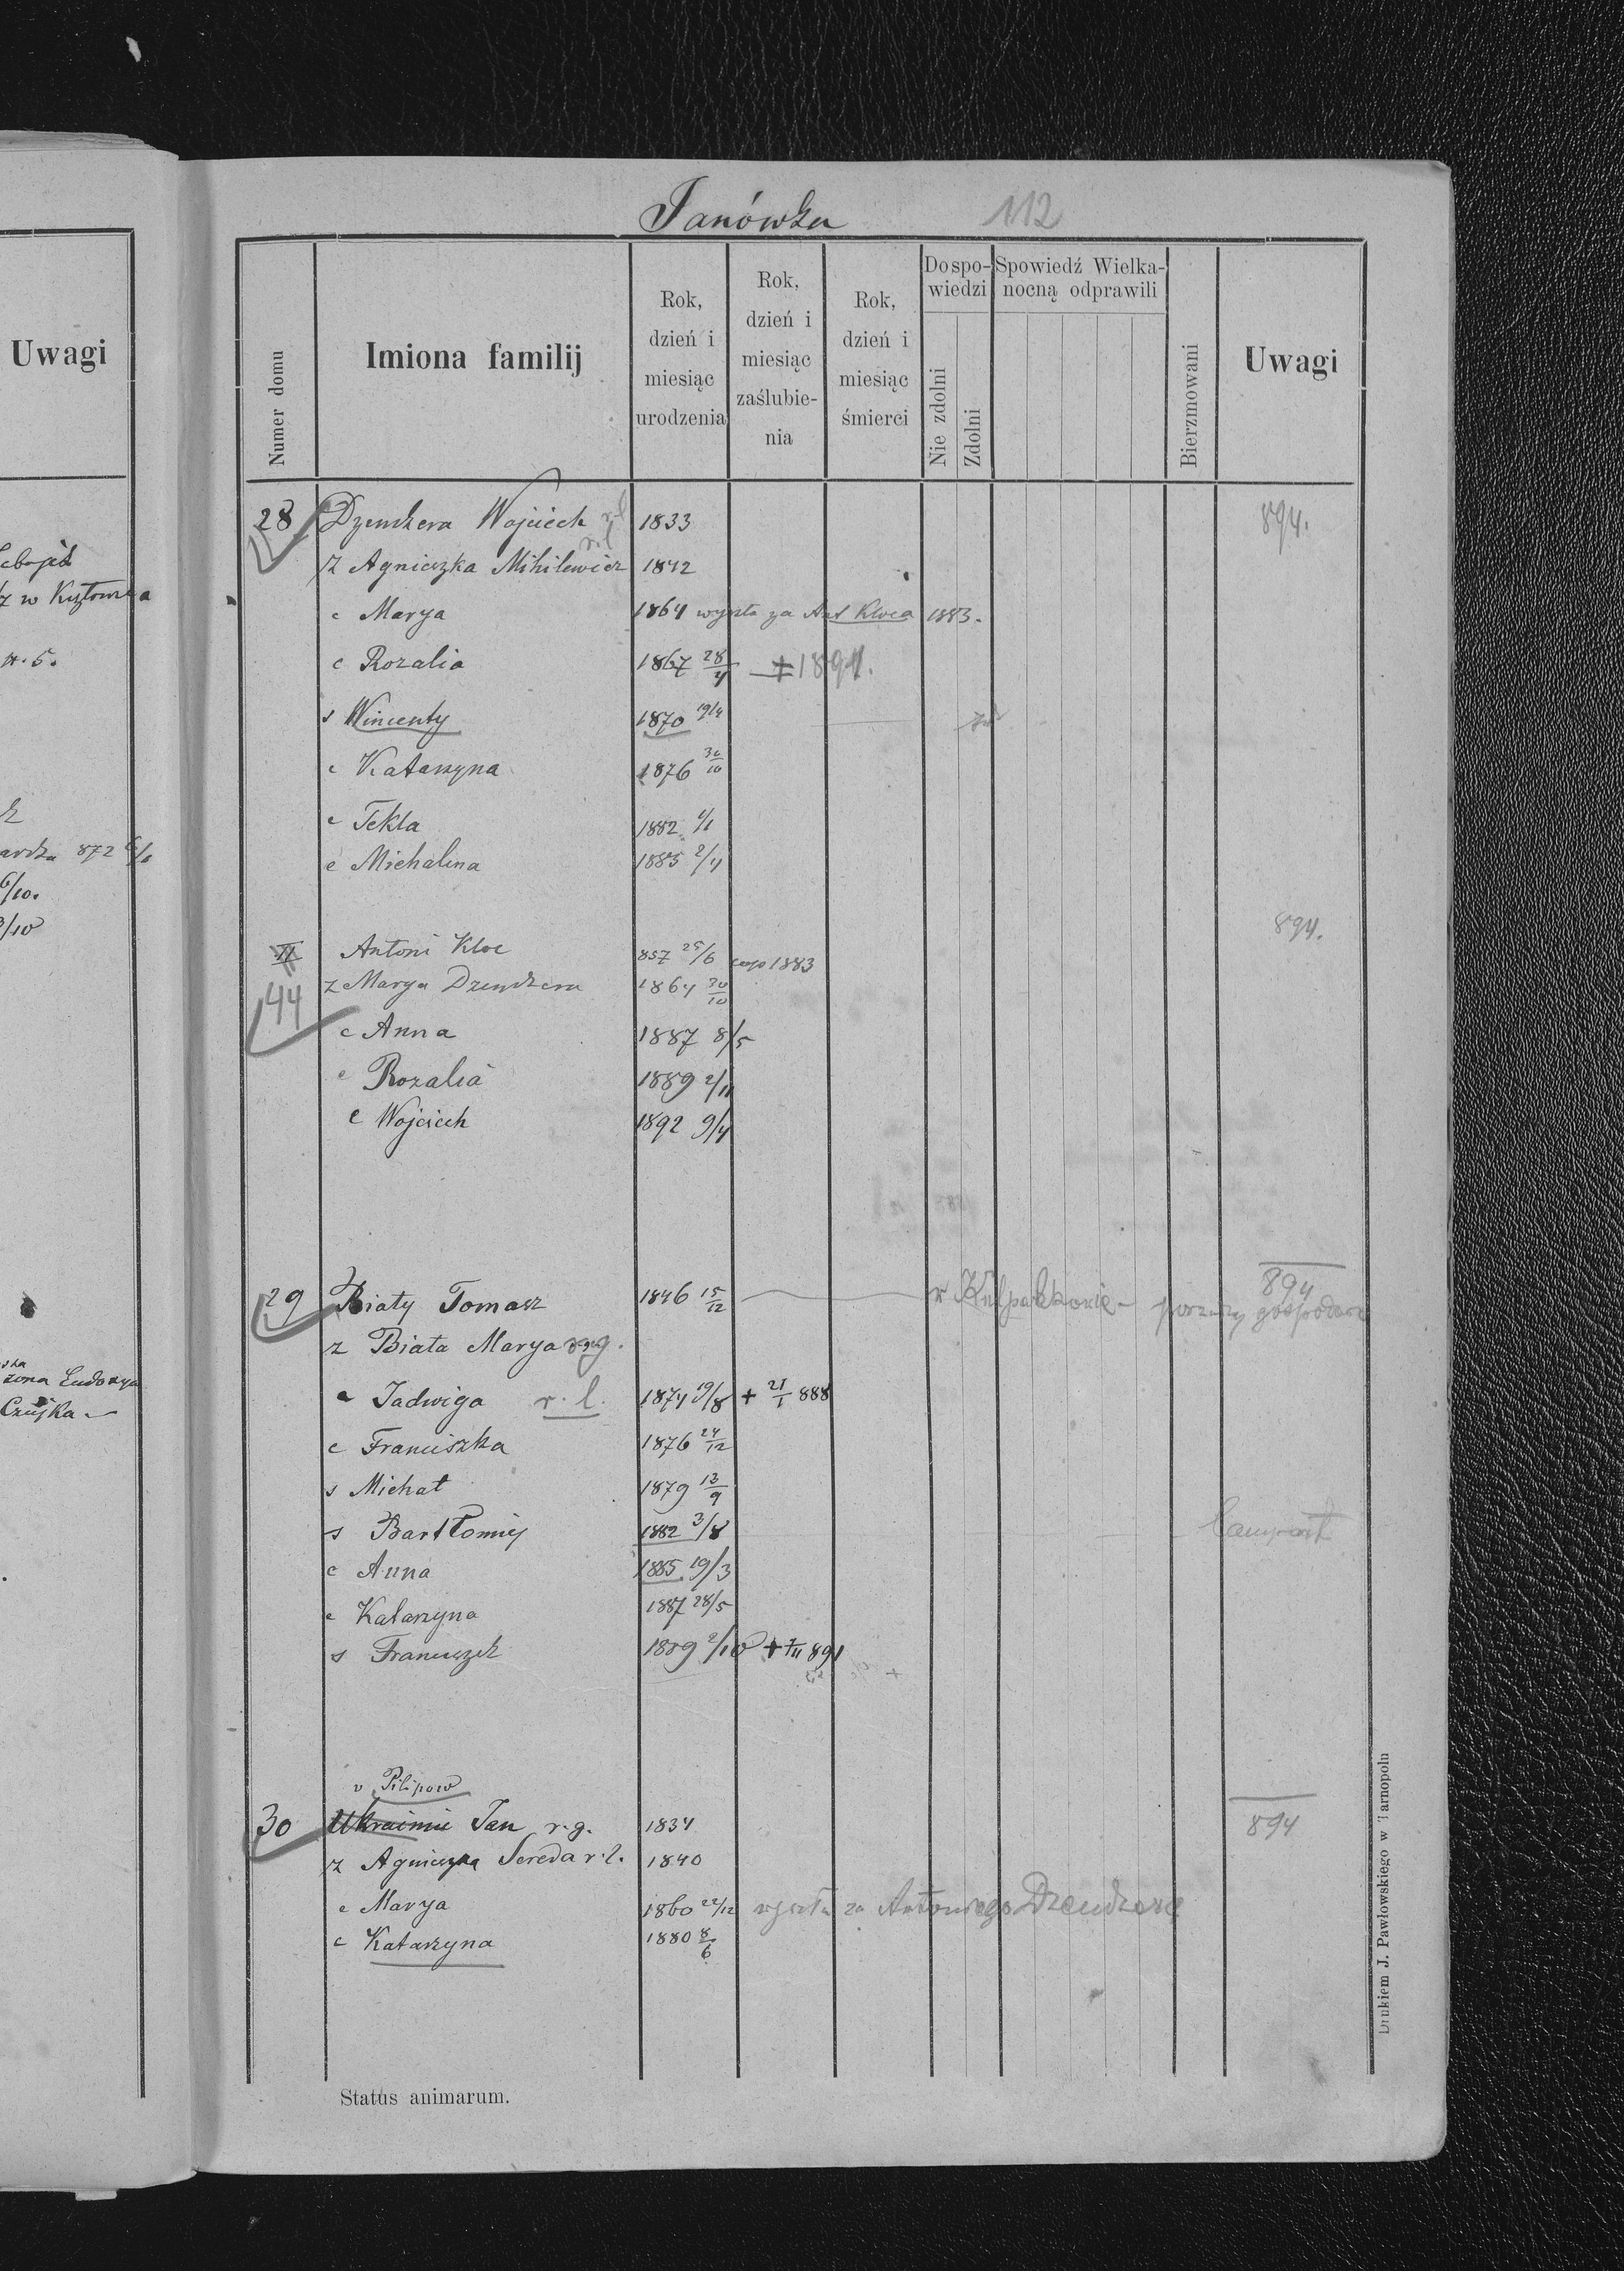 Janówka 112
Uwagi
Numer domu
Imiona familij
Rok, dzień i miesiąc urodzenia
Rok, dzień i miesiąc zaślubie-nia
Rok, dzień i miesiąc śmierci
Do spo-wiedzi
Nie zdolni
Zdolni
Spowiedź Wielka-nocną odprawili
Bierzmowani
Uwagi
28 Dzendzera Wojciech r.l 1833 894.
ż Agnieszka Mihilewicz r.l. 1842
c Marya 1864 wyszła za Ant Kloca 1883.
c Rozalia 1867 28/4 + 1891.
s Wincenty 1870 19/4
c Katarzyna 1876 30/10
c Tekla 1882
c Michalina 1885 2/4
894.
II Antoni Kloc 857 25/6 1883
44
ż Marya Dzendzera 1864 30/10
c Anna 1887 8/5
c Rozalia 1889 2/11
c Wojciech 1892 9/4
894
29 Biały Tomasz 1846 15/12 w Kulparkowie
ż Biała Marya r.g.
c Jadwiga r.l. 1874 19/8 + 21/1 888
c Franciszka 1876 24/12
s Michał 1879 13/9
s Bartłomiej 1882 3/8
c Anna 1885 19/3
c Katarzyna 1887 28/5
s Franciszek 1889 2/10 + 891
v Pilipow
30 Ukrainiec Jan r.g. 1834 894
ż Agnieszka Sereda r.l. 1840
c Marya 1860 22/12 wyszła za Antoniego Dzendzerę
c Katarzyna 1880 8/6
Status animarum.
Drukiem J. Pawłowskiego w Tarnopolu
ż w
n. 5.
872
6/10.
3/10
żona Eudoxya
Czujka